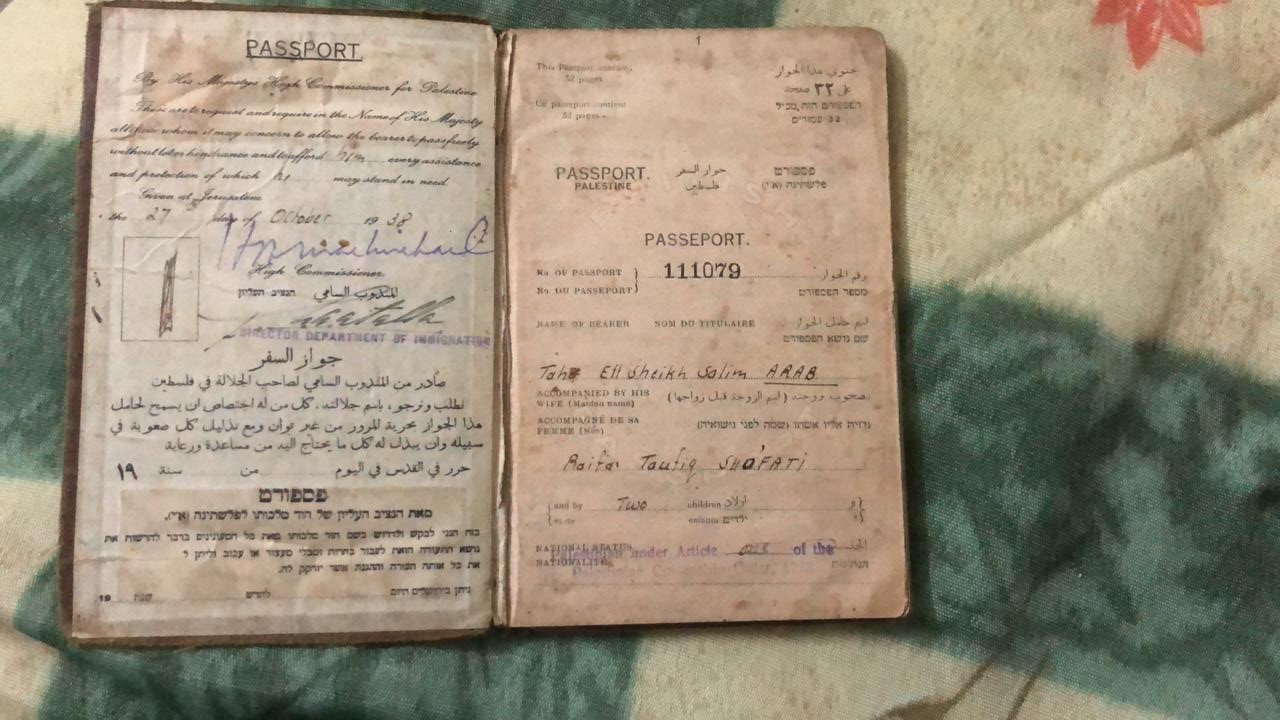 PASSPORT.
By His Majesty's High Commissioner for Palestine
These are to request and require in the Name of His Majesty
all those whom it may concern to allow the bearer to pass freely
without let or hindrance and to afford him every assistance
and protection of which he may stand in need.
Given at Jerusalem
the 27 day of October 1938
High Commissioner.
المندوب السامي הנציב העליון
DIRECTOR DEPARTMENT OF IMMIGRATION
جواز السفر
صادر من المندوب السامي لصاحب الجلالة في فلسطين
نطلب ونرجو، باسم جلالته، كل من له اختصاص ان يسمح لحامل
هذا الجواز بحرية المرور من غير توان ومع تذليل كل صعوبة في
سبيله وان يبذل له كل ما يحتاج اليه من مساعدة ورعاية
حرر في القدس في اليوم من سنة ١٩
פספורט
מאת הנציב העליון של הוד מלכותו לפלשתינה (א״י).
בזה הנני לבקש ולדרוש בשם הוד מלכותו מאת כל המעונינים בדבר להרשות את
נושא התעודה הזאת לעבור בחרות ומבלי מעצור או עכוב וליתן ל
את כל אותה העזרה וההגנה אשר יזדקק לה.
ניתן בירושלים היום לחדש שנת 19
1
This Passport contains
32 pages
Ce passeport contient
32 pages
على ٣٢ صفحة
הפספורט הזה מכיל
32 עמודים
PASSPORT. جواز السفر פספורט
PALESTINE فلسطين פלשתינה (א״י)
PASSEPORT.
No. OF PASSPORT 111079 رقم الجواز
No. DU PASSEPORT מספר הפספורט
NAME OF BEARER NOM DU TITULAIRE اسم حامل الجواز
שם נושא הפספורט
Taha Ell Sheikh Salim ARAB
ACCOMPANIED BY HIS
WIFE (Maiden name) (اسم الزوجة قبل زواجها)
ACCOMPAGNÉ DE SA
FEMME (Née) נלוית אליו אשתו (שמה לפני נישואיה)
Raifa Taufiq SHO'FATI
and by Two children اولاد
et de enfants ילדים
NATIONAL STATUS
NATIONALITÉ
Palestinian under Article of the